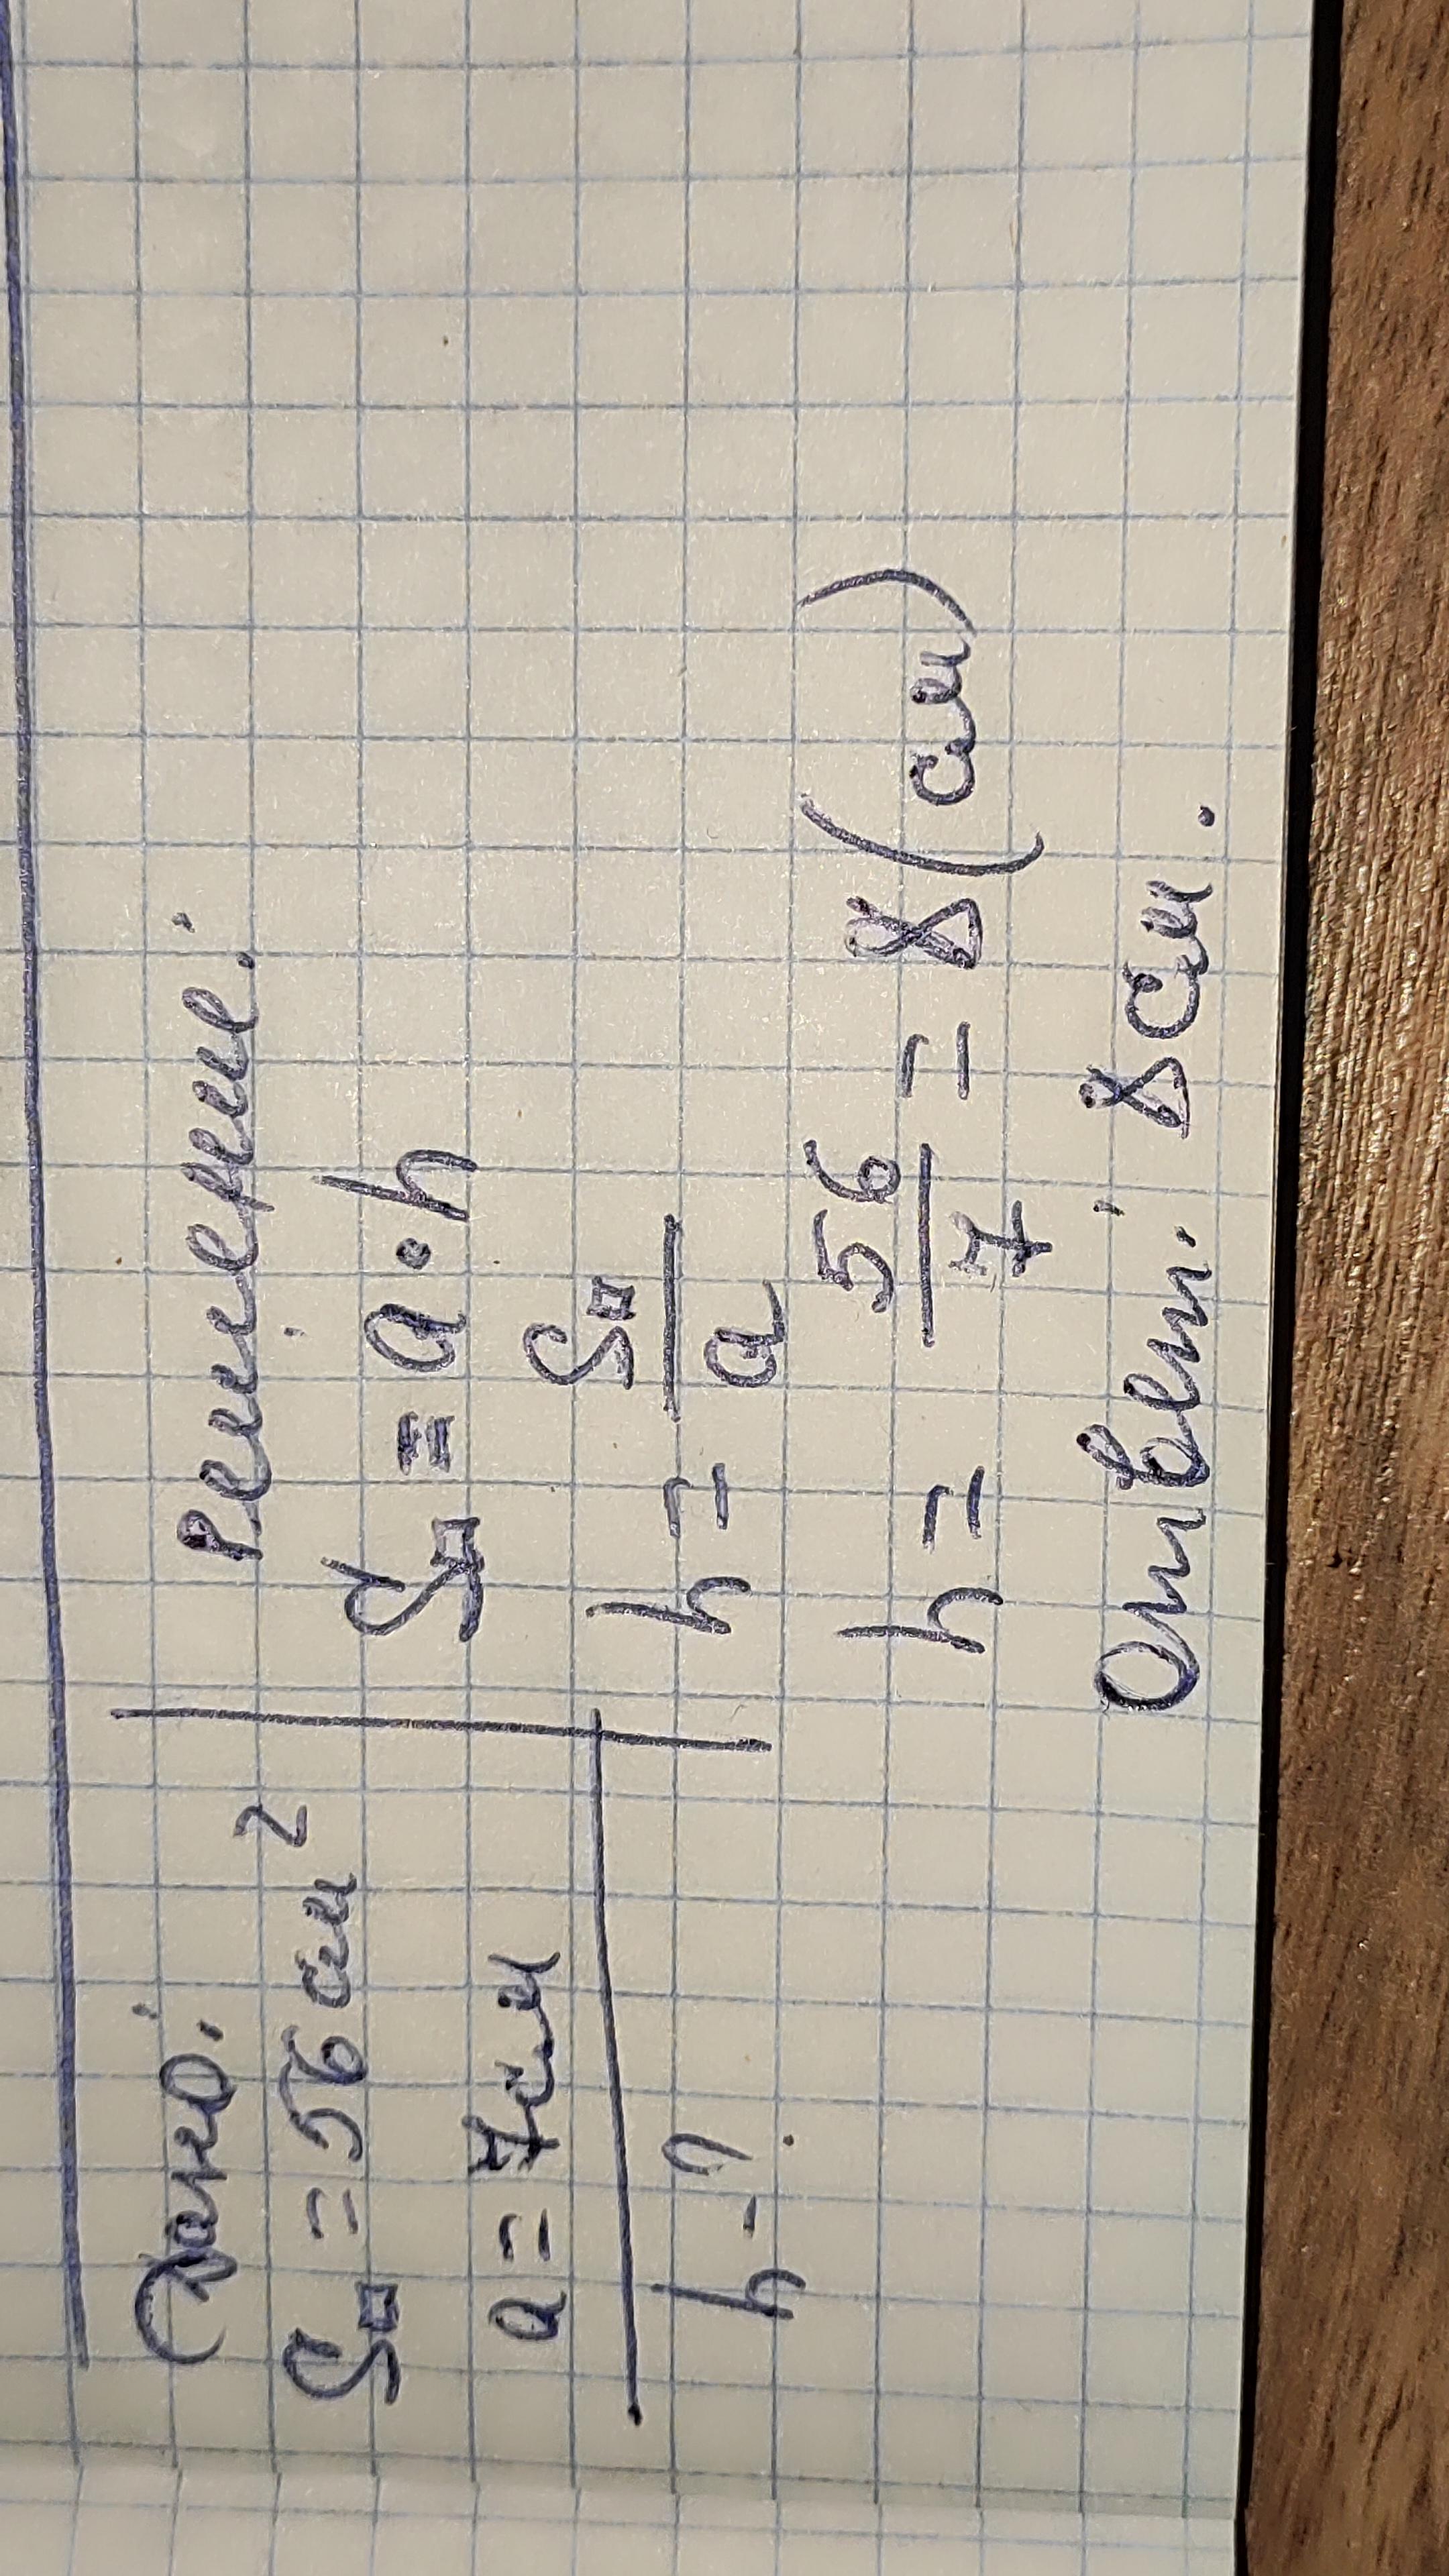 Дано:
S□ = 56 см²
a = 7см
h - ?
Решение:
S□ = a · h
h = S□ / a
h = 56 / 7 = 8 (см)
Ответ: 8см.